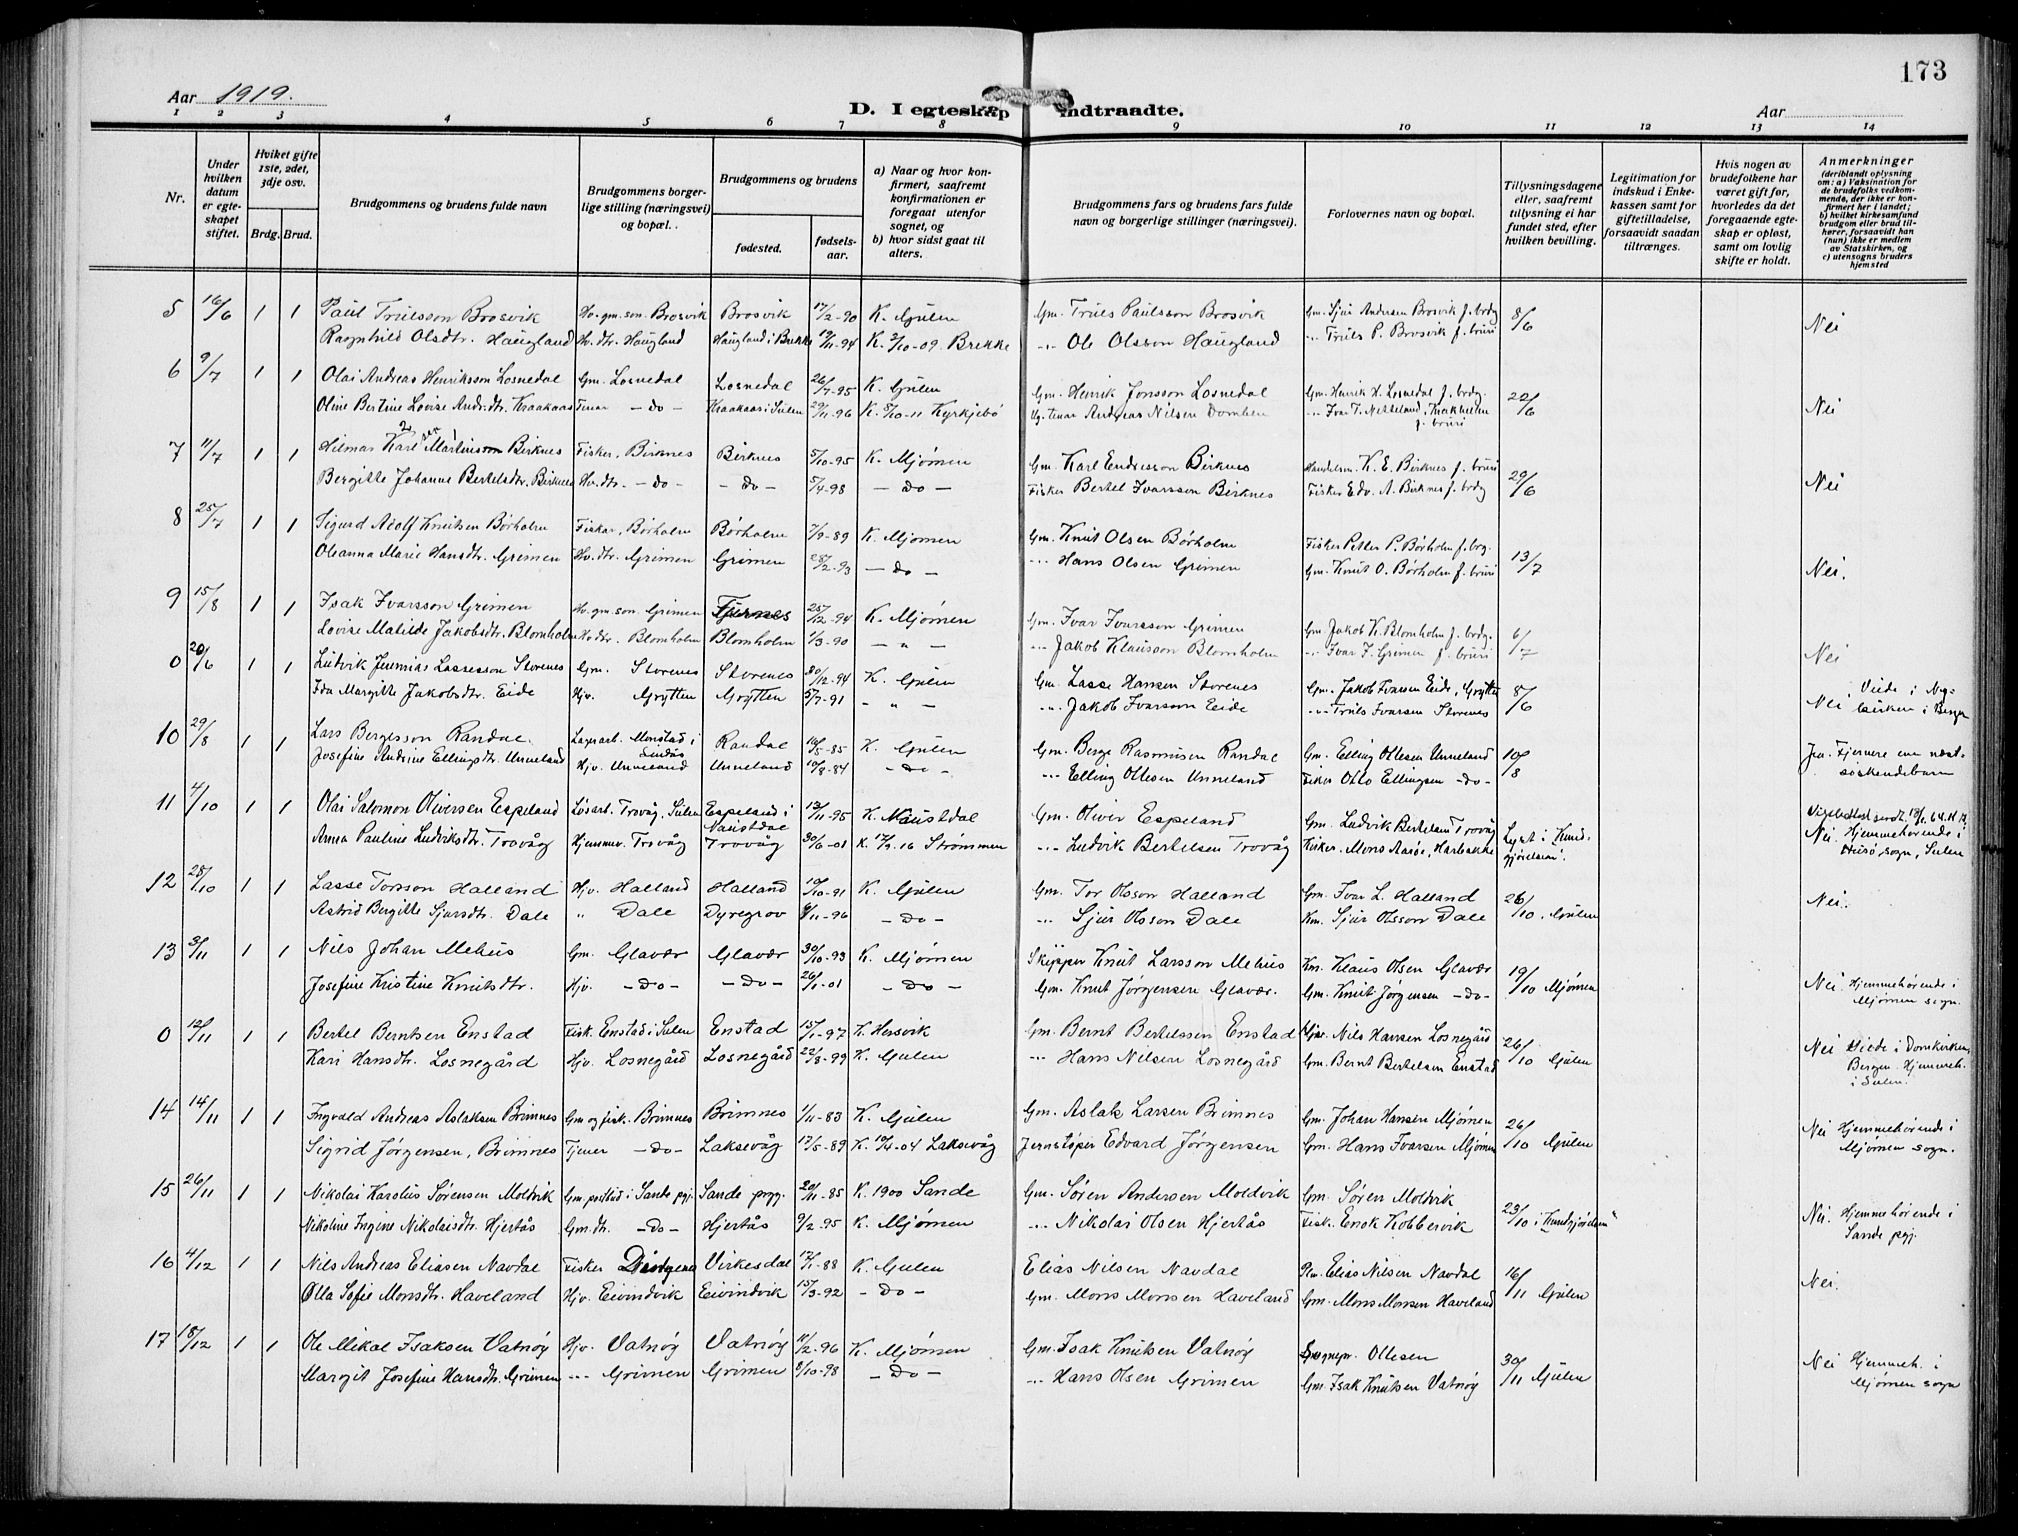 173
Aar 1919.
D. I egteskap indtraadte.
Aar
1 2 3 4 5 6 7 8 9 10 11 12 13 14
Nr.
Under hvilken datum er egteskapet stiftet.
Hviket gifte 1ste, 2det, 3dje osv.
Brdg. Brud.
Brudgommens og brudens fulde navn
Brudgommens borgerlige stilling (næringsvei) og bopæl.
Brudgommens og brudens
fødested.
fødselsaar.
a) Naar og hvor konfirmert, saafremt konfirmationen er foregaat utenfor sognet, og
b) hvor sidst gaat til alters.
Brudgommens fars og brudens fars fulde navn og borgerlige stillinger (næringsvei).
Forlovernes navn og bopæl.
Tillysningsdagene eller, saafremt tillysning ei har fundet sted, efter hvilken bevilling.
Legitimation for indskud i Enkekassen samt for giftetilladelse, forsaavidt saadan tiltrænges.
Hvis nogen av brudefolkene har været gift før, hvorledes da det foregaaende egteskap er opløst, samt om lovlig skifte er holdt.
Anmerkninger
(deriblandt oplysning om: a) Vaksination for de brudefolks vedkommende, der ikke er konfirmert her i landet; b) hvilket kirkesamfund brudgom eller brud tilhører, forsaavidt han (hun) ikke er medlem av Statskirken, og c) utensogns bruders hjemsted
5 16/6 1 1 Paul Trulsson Brosvik Hv. gm. son. Brosvik Brosvik 17/2-90 K. Gulen Gm. Truls Paulsson Brosvik Gm. Sjur Andersen Brosvik f. brdg 8/6 Nei
Ragnhild Olsdtr. Haugland Hv. dtr. Haugland Haugland i Brekke 19/11-94 K. 3/10-09. Brekke -"- Ole Olsson Haugland -"- Truls P. Brosvik f. bruri
6 9/7 1 1 Olai Andreas Henriksson Losnedal Gm. Losnedal Losnedal 26/7-95 K. Gulen Gm. Henrik Jonsson Losnedal Gm. Henrik H. Losnedal f. brdg. 22/6 Nei
Oline Bertine Lovise Andr.dtr. Kraakaas Tenar -do- Kraakaas i Sulen 29/11-96 K. 8/10-11 Kyrkjebø Andreas Nilsen Domben -"- Ivar T. Netteland, f. bruri
7 11/7 1 1 Hilmar Karl Martinson Birknes Fisker, Birknes Birknes 5/10-95 K. Mjømen Gm. Karl Endresson Birknes Handelsm. K. E. Birknes f. bruri 29/6 Nei
Bergitte Johanne Bertelsdtr. Birknes Hv. dtr. -do- -do- 5/4-98 -do- Fisker Bertel Ivarsson Birknes Fisker Edv. A. Birknes f. brdg
8 25/7 1 1 Sigurd Adolf Knutsen Børholm Fisker, Børholm Børholm 7/9-89 K. Mjømen Gm. Knut Olsen Børholm Fisker Petter P. Børholm f. brg. 13/7 Nei.
Oleanna Marie Hansdtr. Grimen Hv. dtr. Grimen Grimen 28/2-93 -do- -"- Hans Olsen Grimen Gm. Knut O. Børholm f. bruri
9 15/8 1 1 Isak Ivarsson Grimen Hv. gm. son. Grimen 25/12-94 K. Mjømen Gm. Ivar Ivarsson Grimen Gm. Jakob K. Blomholm f. brdg. 6/7 Nei
Lovise Matilde Jakobsdtr. Blomholm Hv dtr. Blomholm Blomholm 1/3-90 - " - -"- Jakob Klausson Blomholm -"- Ivar I. Grimen f. bruri
0 20/6 1 1 Ludvik Jeremias Lassesson Storenes Gm. Storenes Storenes 30/12-94 K. Gulen Gm. Lasse Hansen Storenes Gm. Jakob Ivarsen Eide, Grytten 8/6 Nei Viede i Nykirken i Bergen
Ida Margitte Jakobsdtr. Eide Hjv. Grytten Grytten 5/7-91 - " - -"- Jakob Ivarsson Eide -"- Truls Ivarsen Storenes
10 29/8 1 1 Lars Bergesson Randal. Lagerarb. Monstad i Lindås Randal 16/5-85 K. Gulen Gm. Berge Rasmusen Randal Gm. Elling Ottesen Unneland 10/8 Ja. Fjernere enn næstsøskendebarn
Josefine Andrine Ellingsdtr. Unneland Hjv. Unneland Unneland 10/8-84 -do- -"- Elling Ottesen Unneland Fisker Otto Ellingsen -do-
11 4/10 1 1 Olai Salomon Oliversen Espeland Løsarb. Trovåg, Sulen Espeland i Naustdal 12/11-95 K. Naustdal Gm. Oliver Espeland Gm. Ludvik Bertelsen Trovåg Lyst i "Kundgjørelsen". Nei. Hjemmehørende i Husø sogn, Sulen
Anna Pauline Ludviksdtr. Trovåg Hjemmev. Trovåg Trovåg 30/6-01 K. 17/9.16 Strømmen -"- Ludvik Bertelsen Trovåg Fisker. Mons Aasøe, Harbakke
12 25/10 1 1 Lasse Torsson Halland Hjv. Halland Halland 10/10-91 K. Gulen Gm. Tor Olsson Halland Gm. Ivar L. Halland 26/10. Gulen Nei.
Astrid Bergitte Sjursdtr. Dale " Dale Dyregrov 9/11-96 -do- -"- Sjur Olsson Dale Km. Sjur Olsson Dale
13 3/11 1 1 Nils Johan Mehus Gm. Glavær Glavær 30/10-93 K. Mjømen Skipper Knut Larsson Mehus Km. Klaus Olsen Glavær 19/10 Mjømen Nei. Hjemmehørende i Mjømen sogn.
Josefine Kristine Knutsdtr. Hjv. -do- -do- 26/1-01 -do- Gm. Knut Jørgensen Glavær. Gm. Knut Jørgensen -do-
0 12/11 1 1 Bertel Berntsen Enstad Fisk. Enstad i Sulen Enstad 15/1-97 K. Hersvik Gm. Bernt Bertelssen Enstad Nils Hansen Losnegård 26/10 Gulen Nei Viede i Domkirken, Bergen. Hjemmeh. i Sulen.
Kari Hansdtr. Losnegård Hjv. Losnegård Losnegård 22/8-99 K. Gulen -"- Hans Nilsen Losnegård Gm. Bernt Bertelsen Enstad
14 14/11 1 1 Ingvald Andreas Aslaksen Brimnes Gm og fisk. Brimnes Brimnes 1/11-83 K. Gulen Gm. Aslak Larsen Brimnes Gm. Johan Hansen Mjømen 26/10 Gulen Nei Hjemmehørende i Mjømen sogn.
Sigrid Jørgensen, Brimnes Tjener -do- Laksevåg 17/5-89 K. 10/4-04 Laksevåg Jernstøper Edvard Jørgensen Gm. Hans Ivarsen Mjømen
15 26/11 1 1 Nikolai Karolius Sørensen Moldvik Gm. postbud i Sande pgj. Sande prgj. 20/11-85 K. 1900 Sande Gm. Søren Andersen Moldvik Gm. Søren Moldvik 23/10 i "Kundgjørelsen" Nei. Hjemmehørende i Sande pgj.
Nikoline Ingine Nikolaisdtr. Hjertås Gm. dtr. -do- Hjertås 9/2-95 K. Mjømen -"- Nikolai Olsen Hjertås Fisk. Enok Kobbervik
16 4/12 1 1 Nils Andreas Eliasen Navdal Fisker Dingenes Virkesdal 17/1-88 K. Gulen Elias Nilsen Navdal Gm. Elias Nilsen Navdal 16/11 Gulen Nei.
Olla Sofie Monsdtr. Haveland Hjv. Eivindvik Eivindvik 15/3-92 -do- Gm. Mons Monsen Haveland Gm. Mons Monsen Haveland
17 18/12 1 1 Ole Mikal Isaksen Vatnøy Hjv. Vatnøy Vatnøy 11/2-96 K. Mjømen Gm. Isak Knutsen Vatnøy Sognepr. Ottesen 30/11 Gulen Nei Hjemmeh. i Mjømen sogn
Margit Josefine Hansdtr. Grimen -"- Grimen Grimen 8/10-98 -do- -"- Hans Olsen Grimen Gm. Isak Knutsen Vatnøy